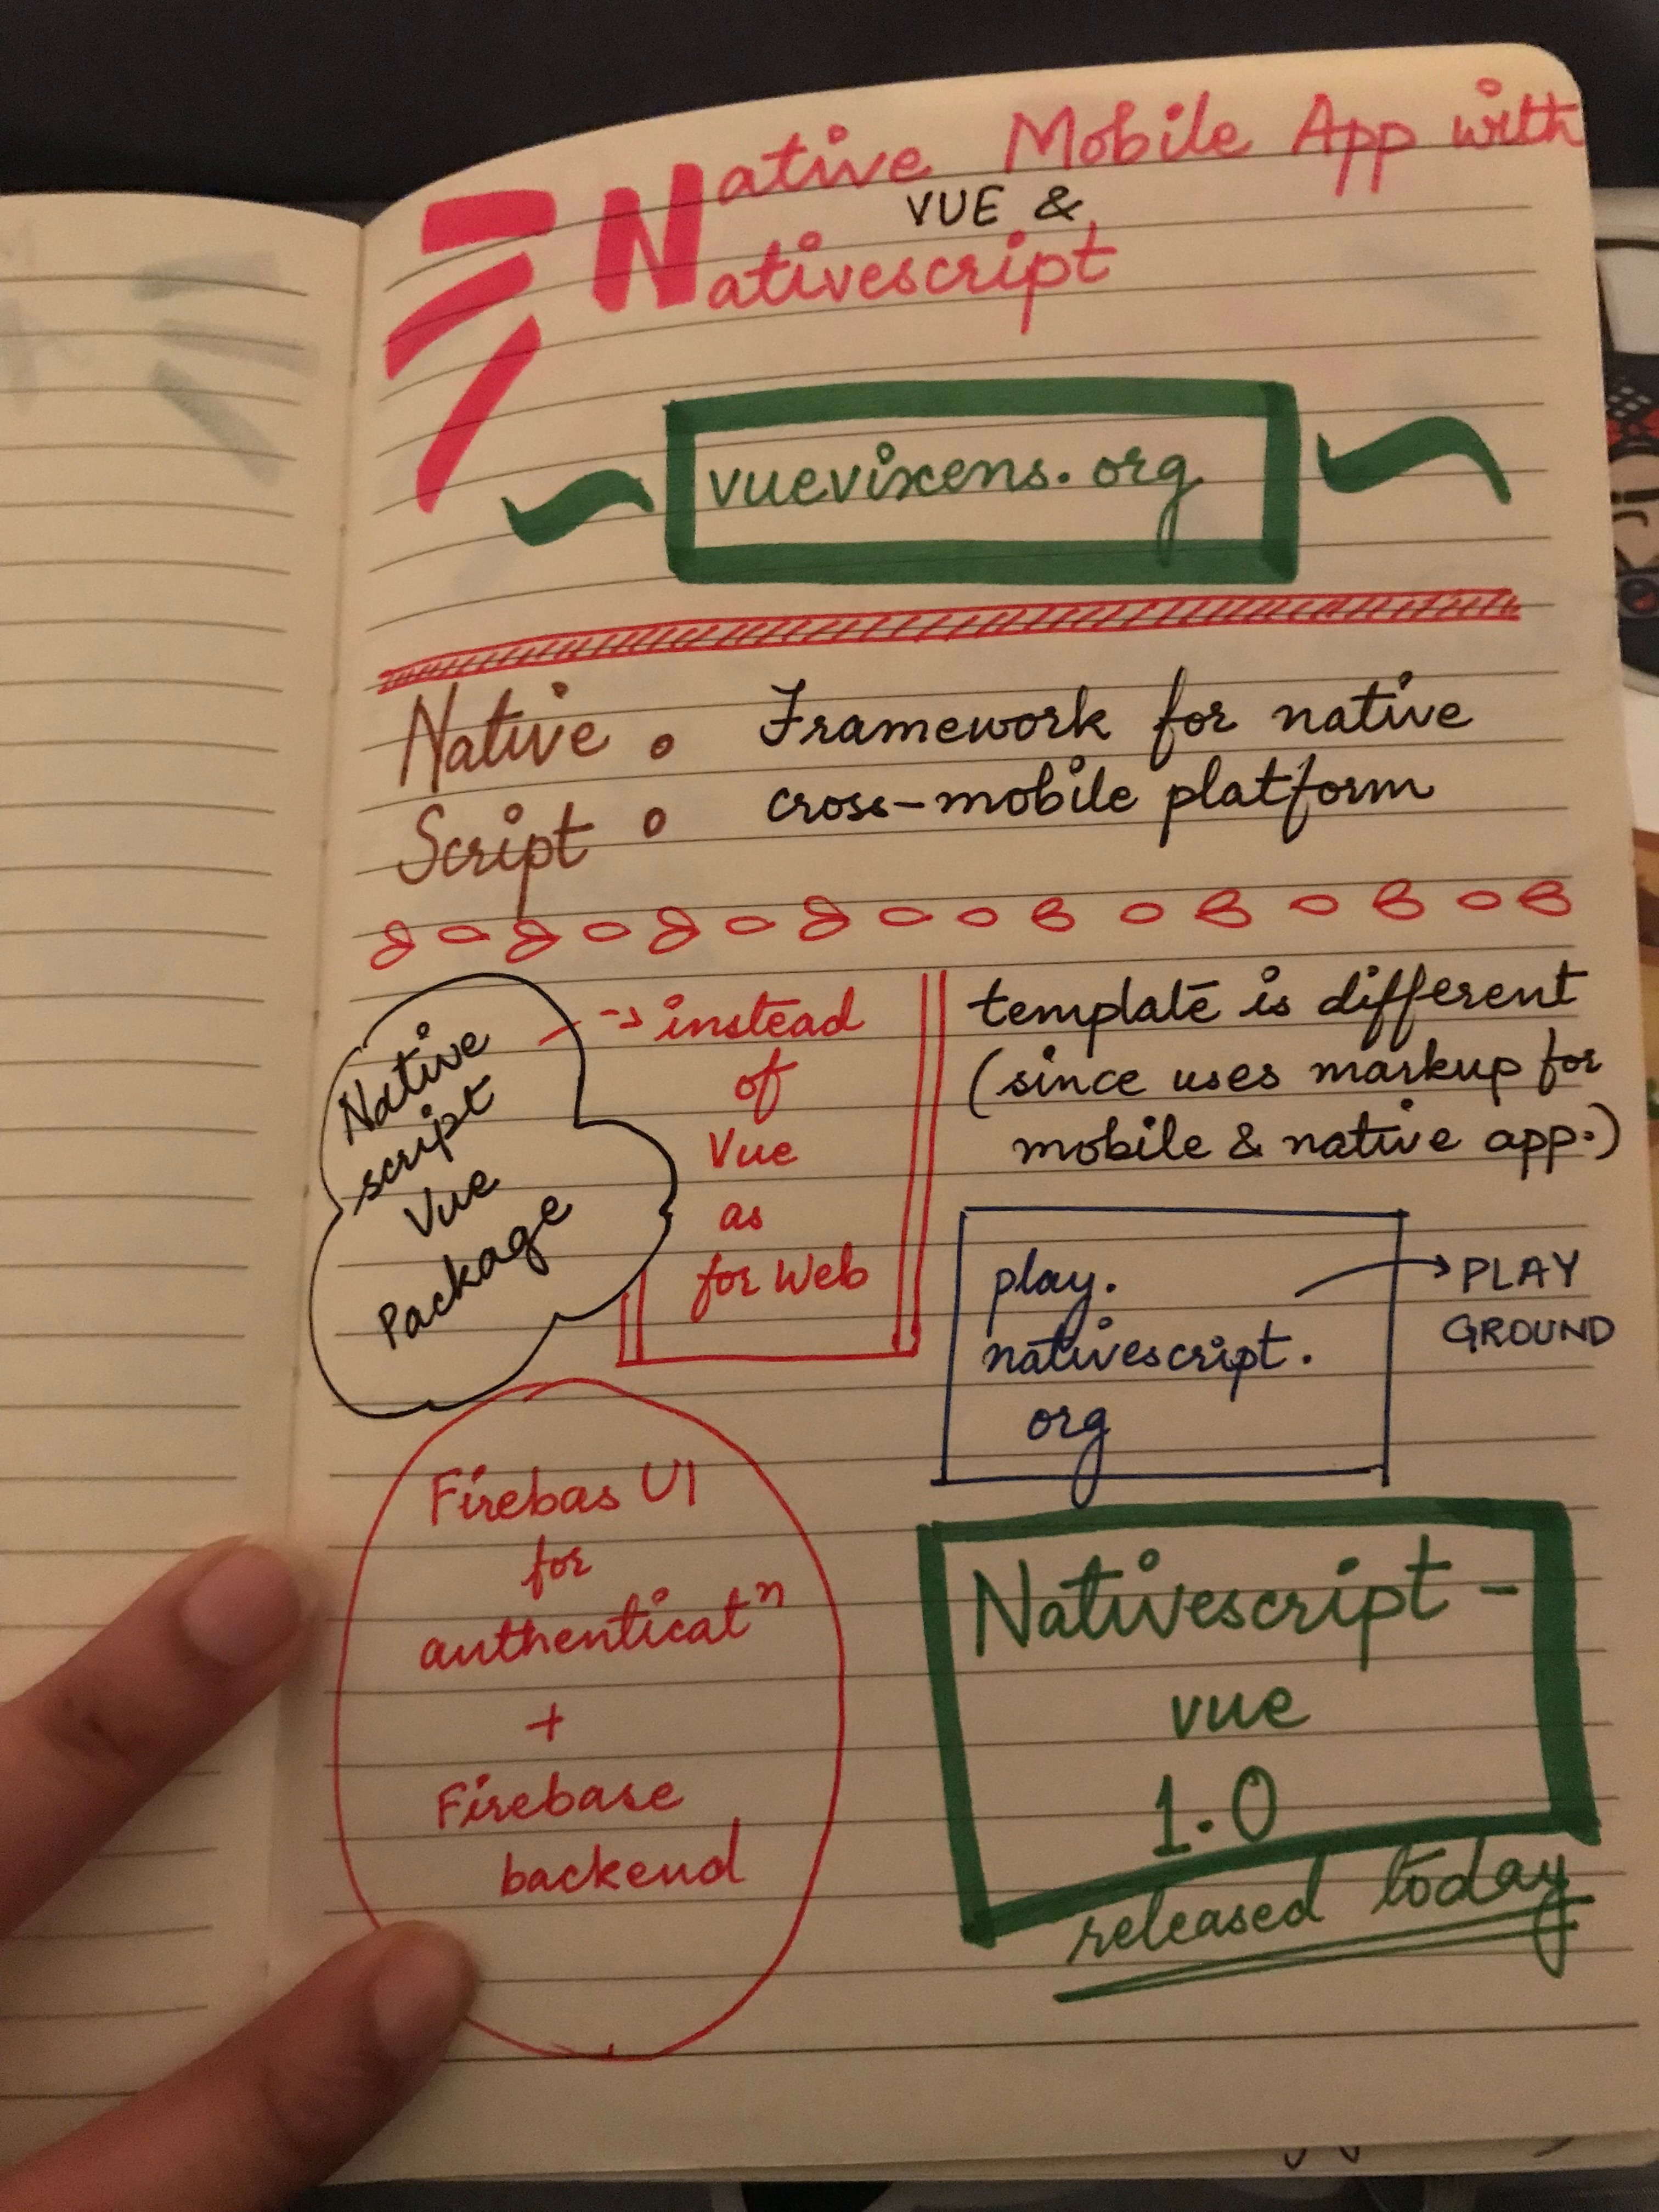 Native Mobile App with
VUE &
Nativescript
vuevixens.org
Native
Script :
Framework for native
cross-mobile platform
Native
script
Vue
Package
instead
of
Vue
as
for Web
template is different
(since uses markup for
mobile & native app.)
play.
nativescript.
org
PLAY
GROUND
Firebas UI
for
authenticatⁿ
+
Firebase
backend
Nativescript-
vue
1.0
released today